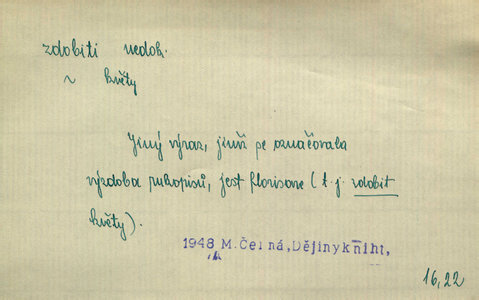 zdobiti nedok.
~ květy
Jiný výraz, jímž se označovala
výzdoba rukopisů, jest florisare (t. j. zdobit
květy).
1948 M. Černá, Dějiny kniht,
16,22